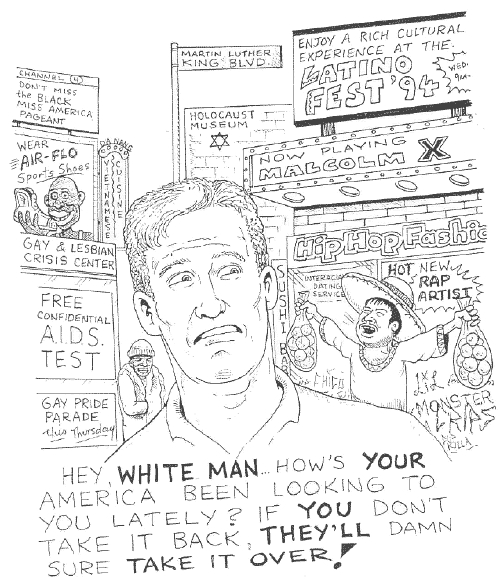 CHANNEL 4
DON'T MISS
the BLACK
MISS AMERICA
PAGEANT
MARTIN LUTHER
KING BLVD.
ENJOY A RICH CULTURAL
EXPERIENCE AT THE
LATINO
FEST '94
WED.
HOLOCAUST
MUSEUM
NOW PLAYING
MALCOLM X
WEAR
AIR-FLO
Sports Shoes
DA NANG
VIETNAMESE
CUISINE
GAY & LESBIAN
CRISIS CENTER
FREE
CONFIDENTIAL
A.I.D.S.
TEST
GAY PRIDE
PARADE
this Thursday
Hip Hop Fashio
SUSHI BA
INTERRACIAL
DATING
SERVICE
HOT NEW
RAP
ARTIST
MONSTER
HEY, WHITE MAN... HOW'S YOUR
AMERICA BEEN LOOKING TO
YOU LATELY? IF YOU DON'T
TAKE IT BACK, THEY'LL DAMN
SURE TAKE IT OVER!